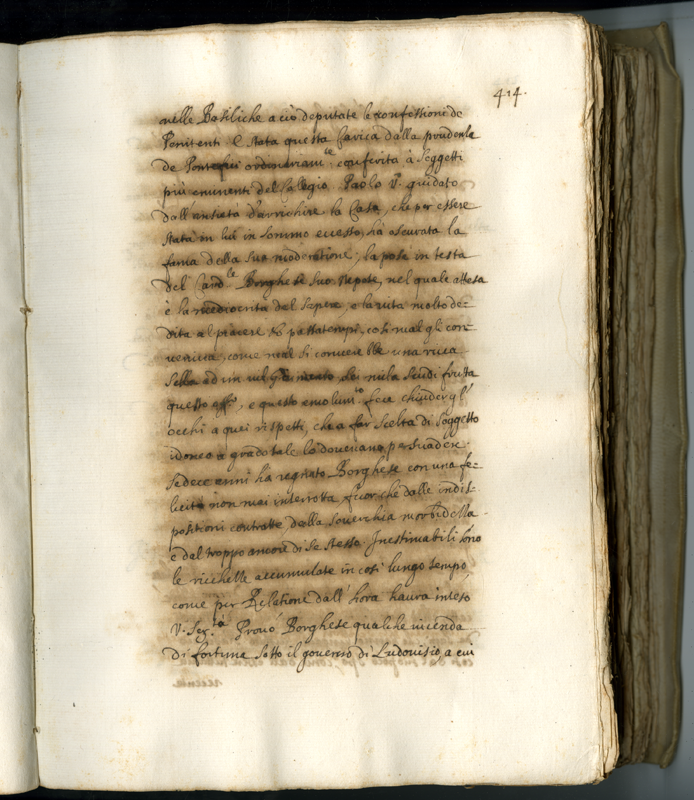 414.
nelle Basiliche a ciò deputate le confessioni de
Penitenti. È stata questa Carica dalla prudenza
de Pontefici ordinariam.te conferita à Soggetti
più eminenti del Collegio. Paolo V.º guidato
dall'ansietà d'arrichire la Casa, che per essere
stata in lui in sommo eccesso, hà oscurata la
fama della sua moderatione, la pose in testa
del Card.le Borghese suo Nepote, nel quale attesa
è la mediocrità del sapere, e la vita molto de=
dita al piacere, & passatempi, così mal gli con=
veniva, come mal si converrebbe una ricca
sella ad un vil mila scudi frutta
questo off.º, e questo emolum.to fece chiuder gl'
occhi a quei rispetti, che a far scelta di soggetto
idoneo a grado tale lo dovevano persuadere.
sedece anni hà regnato Borghese con una fe=
licità non mai interrotta, fuor che dalle indis=
positioni contratte dalla soverchia morbidezza
e dal troppo amore di se stesso. Inestimabili sono
le ricchezze accumulate in così lungo tempo,
come per Relatione dall'hora haurà inteso
V. Ser.tà Provò Borghese qualche vicenda
di fortuna sotto il governo di Ludovisio, a cui